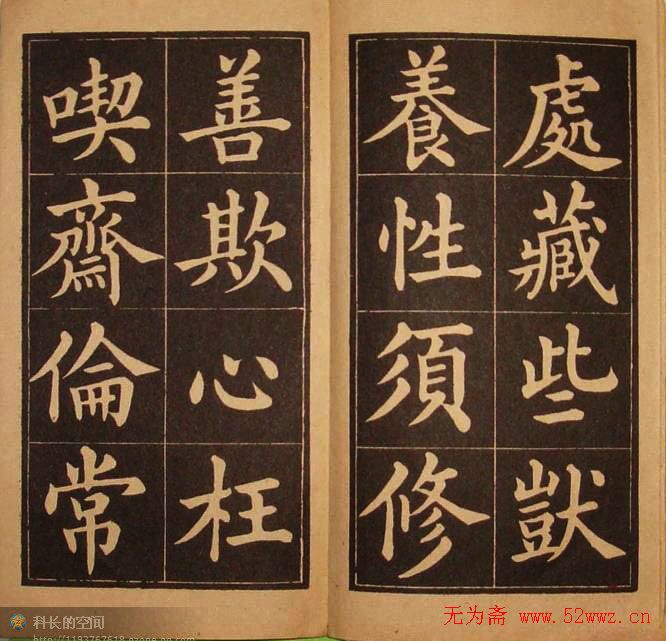 處藏些獃
養性須修
善欺心枉
喫齋倫常
科长的空间
无为斋 www.52wwz.cn